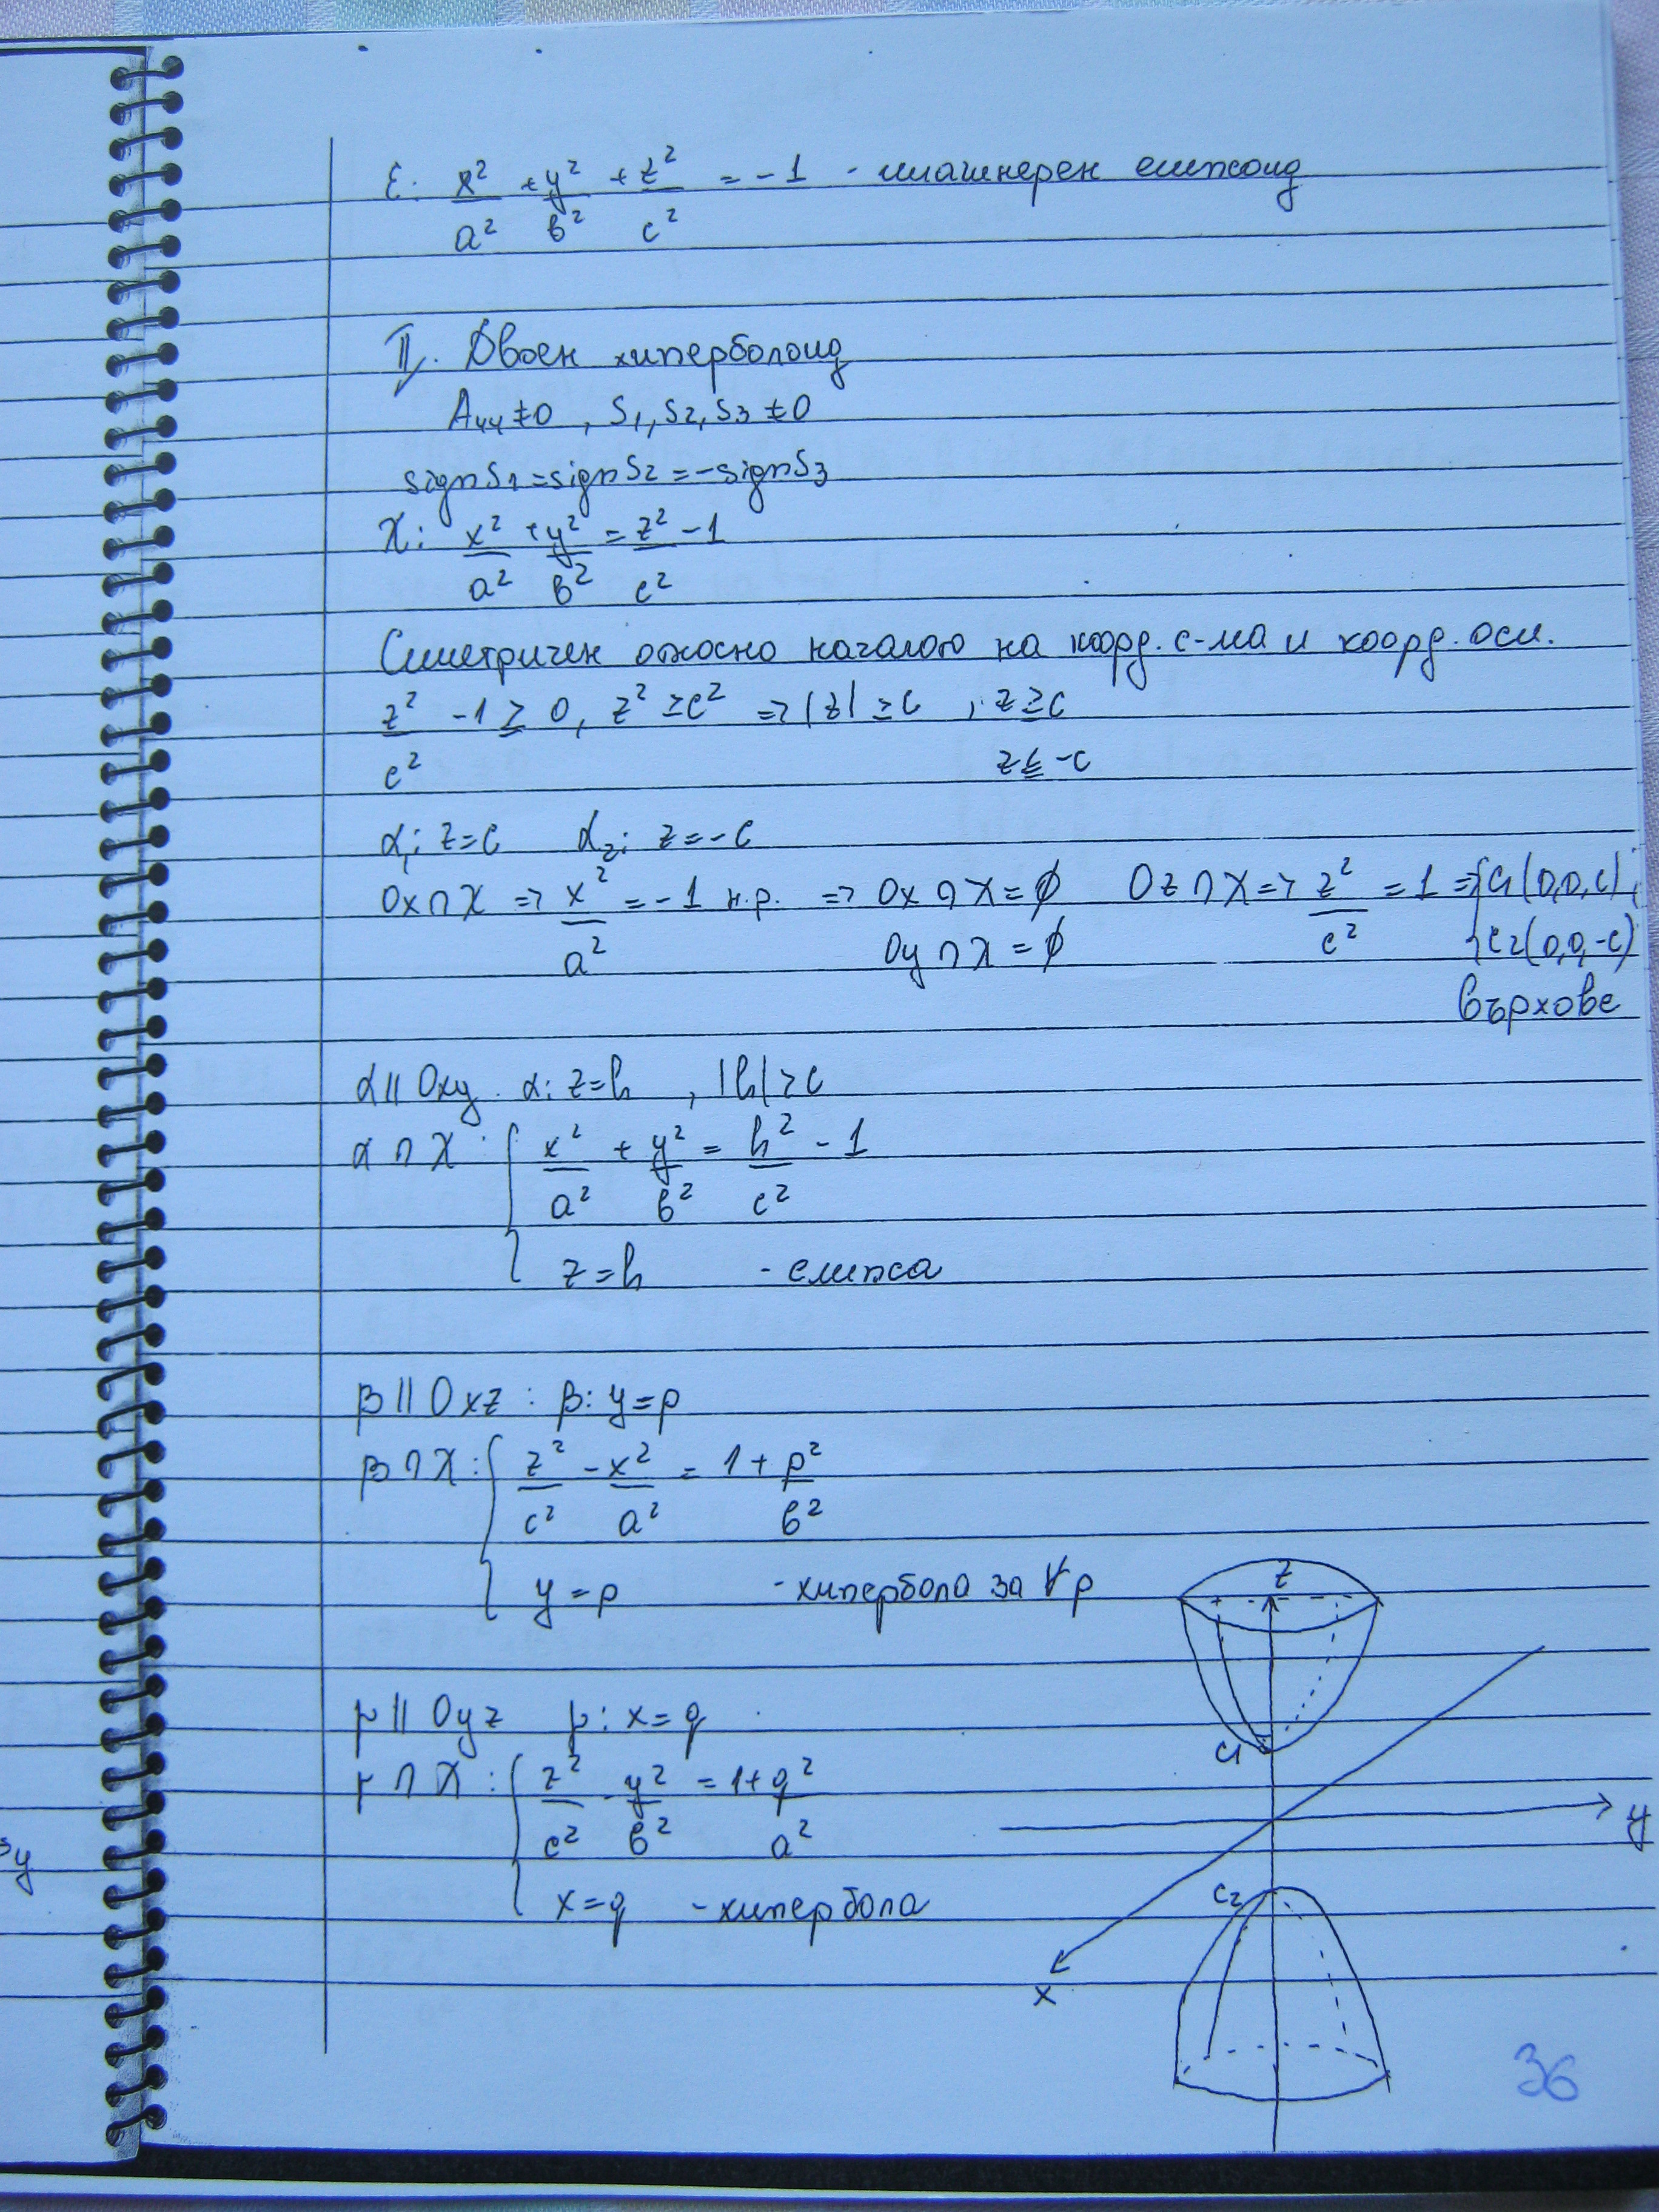 ε: x²/a² + y²/b² + z²/c² = -1 - имагинерен елипсоид
II. Двоен хиперболоид
A₄₄≠0, S₁, S₂, S₃ ≠0
signS₁=signS₂=-signS₃
X: x²/a² + y²/b² = z²/c² - 1
Симетричен относно началото на коорд. с-ма и коорд. оси.
z²/c² - 1 ≥ 0, z² ≥ c² => |z| ≥ c , z ≥ c
z ≤ -c
α₁: z=c α₂: z=-c
Ox∩X => x²/a² = -1 н.р. => Ox∩X=∅ Oz∩X => z²/c² = 1 => {C₁(0,0,c),
Oy∩X=∅ {C₂(0,0,-c)
върхове
α||Oxy. α: z=h , |h|≥c
α∩X: { x²/a² + y²/b² = h²/c² - 1
z=h - елипса
β||Oxz : β: y=p
β∩X: { z²/c² - x²/a² = 1 + p²/b²
y=p - хипербола за ∀p
γ||Oyz γ: x=q
γ∩X: { z²/c² - y²/b² = 1 + q²/a²
x=q - хипербола
z
C₁
y
C₂
x
36
зу